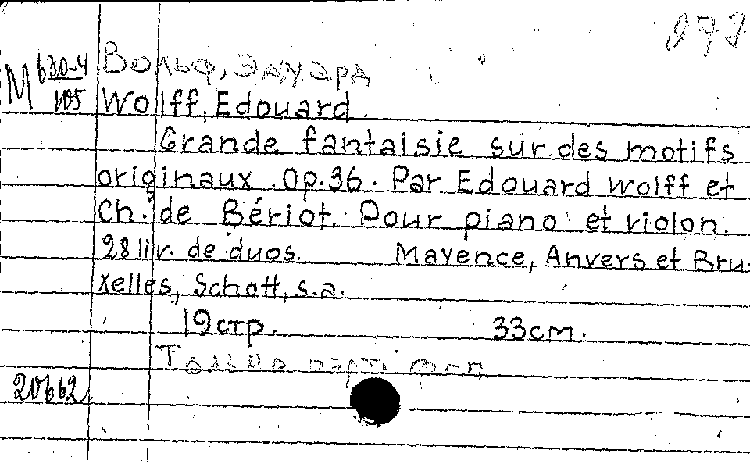 М 630-4
105
Вольф, Эдуард
Wolff, Edouard.
Grande fantaisie sur des motifs
originaux. Op. 36. Par Edouard Wolff et
Ch. de Bériot. Pour piano et violon.
28 liv. de duos. Mayence, Anvers et Bru-
xelles, Schott, s.a.
19 стр. 33 см.
Только
20662